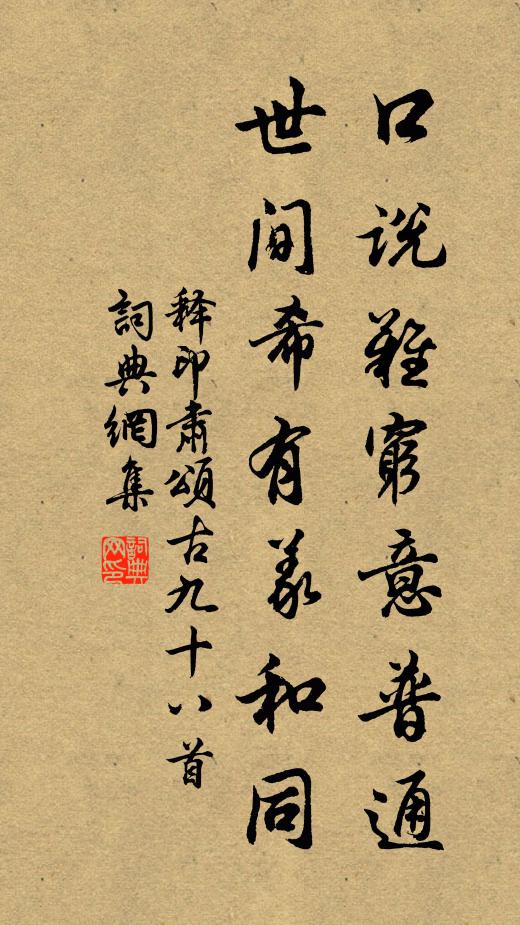 口説難窮意普通
世间希有義和同
释印肃頌古九十八首
詞典網集
詞典
网印